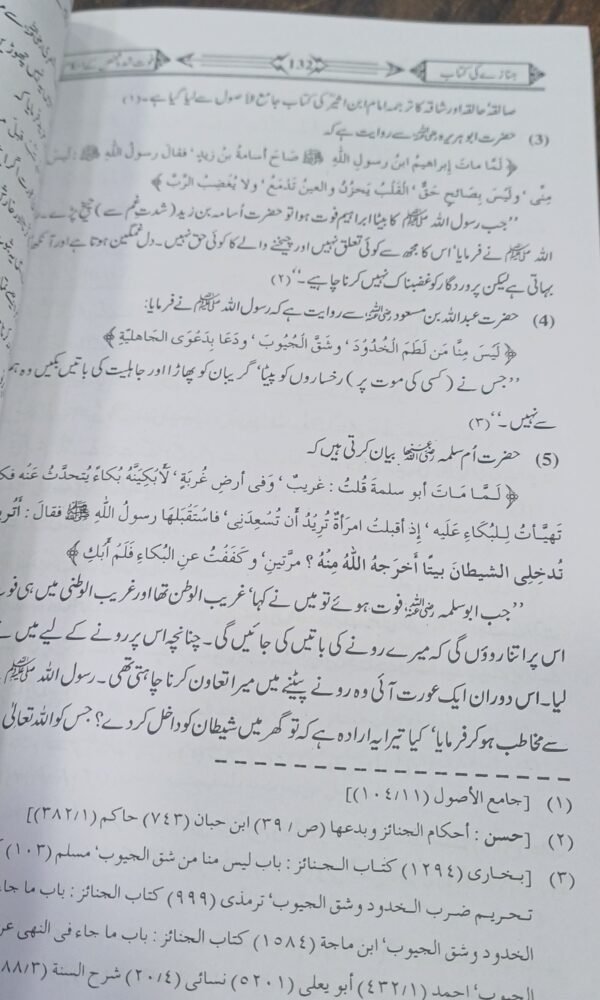 جنازے کی کتاب
132
صالقہ، حالقہ اور شاقہ کا ترجمہ امام ابن اثیرؒ کی کتاب جامع الاصول سے لیا گیا ہے۔(۱)
(3) حضرت ابو ہریرہ رضی اللہ عنہ سے روایت ہے کہ
﴿ لَمَّا ماتَ إبراهيمُ ابنُ رسولِ اللهِ ﷺ صَاحَ أسامةُ بنُ زيدٍ، فقالَ رسولُ اللهِ ﷺ : ليسَ
مِنِّى، ولَيْسَ بِصَائِحٍ حَقٌّ، الْقَلْبُ يَحْزَنُ والعينُ تَدْمَعُ، ولا يُغْضَبُ الرَّبُّ ﴾
”جب رسول اللہ ﷺ کا بیٹا ابراہیم فوت ہوا تو حضرت اُسامہ بن زید (شدتِ غم سے) چیخ پڑے۔
اللہ ﷺ نے فرمایا، اس کا مجھ سے کوئی تعلق نہیں اور چیخنے والے کا کوئی حق نہیں۔ دل غمگین ہوتا ہے اور آنکھ
بہاتی ہے لیکن پروردگار کو غضبناک نہیں کرنا چاہیے۔“(۲)
(4) حضرت عبداللہ بن مسعود رضی اللہ عنہ سے روایت ہے کہ رسول اللہ ﷺ نے فرمایا:
﴿ لَيْسَ مِنَّا مَن لَطَمَ الْخُدُودَ، وشَقَّ الْجُيوبَ، ودَعَا بِدَعْوَى الجَاهليّةِ ﴾
”جس نے (کسی کی موت پر) رخساروں کو پیٹا، گریبان کو پھاڑا اور جاہلیت کی باتیں بکیں وہ ہم
سے نہیں۔“(۳)
(5) حضرت اُم سلمہ رضی اللہ عنہا بیان کرتی ہیں کہ
﴿ لَمَّا مَاتَ أبو سلمةَ قُلتُ : غريبٌ، وَفى أرضِ غُربَةٍ، لَأَبْكِيَنَّهُ بُكاءً يُتحدَّثُ عَنْهُ
تَهيَّأتُ لِلبُكَاءِ عَلَيه، إذ أقبلتْ امرأةٌ تُرِيْدُ أن تُسْعِدَنِى، فاسْتَقبَلَهَا رسولُ اللهِ ﷺ فقالَ :
تُدخِلِى الشيطانَ بيتًا أخرَجهُ اللهُ مِنْهُ ؟ مرّتينِ، وكَفَفْتُ عنِ البُكاءِ فَلَمْ أبْكِ ﴾
”جب ابو سلمہ رضی اللہ عنہ فوت ہوئے تو میں نے کہا، غریب الوطن تھا اور غریب الوطنی میں ہی
اس پر اتنا روؤں گی کہ میرے رونے کی باتیں کی جائیں گی۔ چنانچہ اس پر رونے کے لیے میں نے
لیا۔ اس دوران ایک عورت آئی وہ رونے پیٹنے میں میرا تعاون کرنا چاہتی تھی۔ رسول اللہ ﷺ
سے مخاطب ہو کر فرمایا، کیا تیرا یہ ارادہ ہے کہ تو گھر میں شیطان کو داخل کر دے؟ جس کو اللہ تعالیٰ
(۱) [جامع الأصول (۱۰٤/۱۱)]
(۲) [حسن : أحكام الجنائز وبدعها (ص/۳۹) ابن حبان (۷٤۳) حاكم (۳۸۲/۱)]
(۳) [بخارى (۱۲۹٤) كتاب الجنائز : باب ليس منا من شق الجيوب، مسلم (۱۰۳)
تحريم ضرب الخدود وشق الجيوب، ترمذى (۹۹۹) كتاب الجنائز : باب ما جاء
الخدود وشق الجيوب، ابن ماجة (۱٥۸٤) كتاب الجنائز : باب ما جاء فى النهى عن
الجيوب، احمد (٤۳۲/۱) أبو يعلى (٥۲۰۱) نسائى (۲۰/٤) شرح السنة